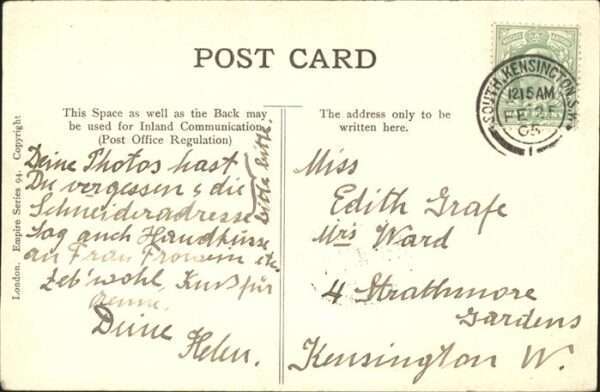 POST CARD
SOUTH KENSINGTON S.W.
12 15 AM
FE 25
05
1
This Space as well as the Back may
be used for Inland Communication
(Post Office Regulation)
The address only to be
written here.
London. Empire Series 94. Copyright
Deine Photos hast
Du vergessen & die
Schneideradresse
Sag auch Handküsse
an Frau etc.
Leb'wohl, Kuß für
Deine
Helen.
Bitte
Miss
Edith Grafe
Mrs Ward
4 Strathmore
Gardens
Kensington W.